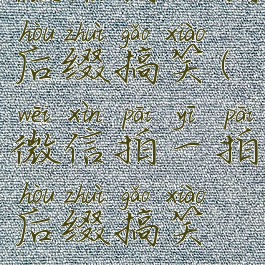 hòu zhuì gǎo xiào
后缀搞笑(
wēi xìn pāi yī pāi
微信拍一拍
hòu zhuì gǎo xiào
后缀搞笑